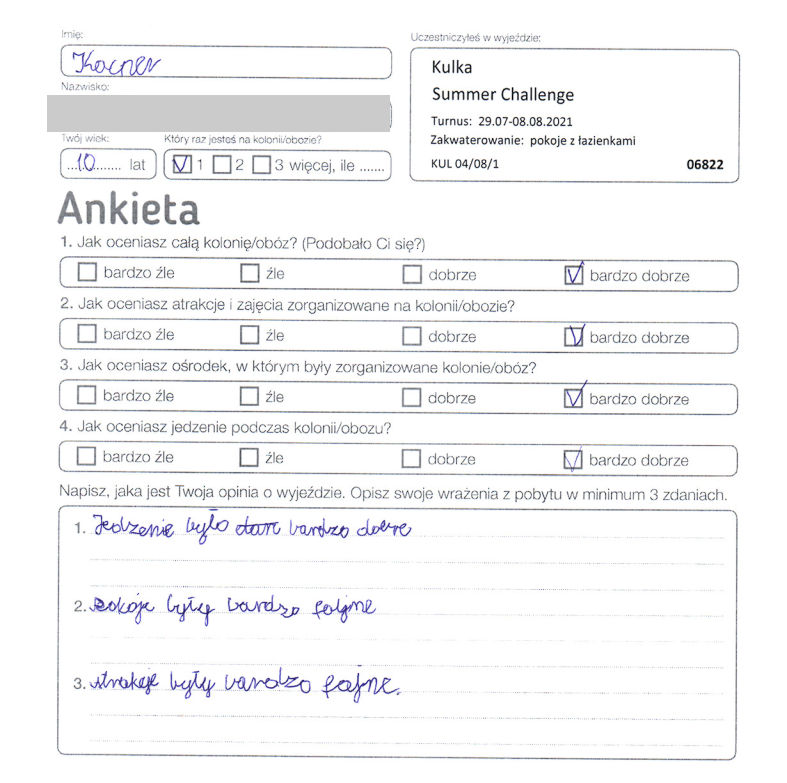 Imię:
Kacper
Nazwisko:
Twój wiek:
Który raz jesteś na kolonii/obozie?
...10....... lat
1 2 3 więcej, ile .......
Uczestniczyłeś w wyjeździe:
Kulka
Summer Challenge
Turnus: 29.07-08.08.2021
Zakwaterowanie: pokoje z łazienkami
KUL 04/08/1 06822
Ankieta
1. Jak oceniasz całą kolonię/obóz? (Podobało Ci się?)
bardzo źle źle dobrze bardzo dobrze
2. Jak oceniasz atrakcje i zajęcia zorganizowane na kolonii/obozie?
bardzo źle źle dobrze bardzo dobrze
3. Jak oceniasz ośrodek, w którym były zorganizowane kolonie/obóz?
bardzo źle źle dobrze bardzo dobrze
4. Jak oceniasz jedzenie podczas kolonii/obozu?
bardzo źle źle dobrze bardzo dobrze
Napisz, jaka jest Twoja opinia o wyjeździe. Opisz swoje wrażenia z pobytu w minimum 3 zdaniach.
1. Jedzenie było bardzo dobre
2. pokoje były bardzo fajne
3. atrakcje były bardzo fajne.